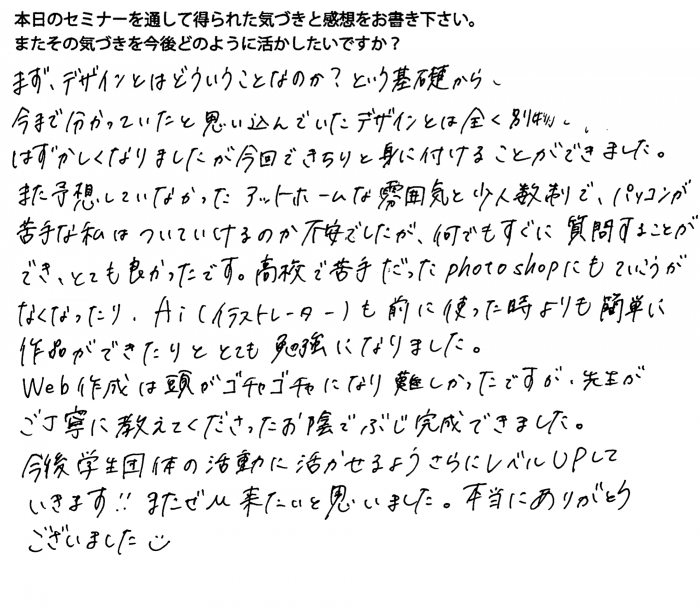 本日のセミナーを通して得られた気づきと感想をお書き下さい。
またその気づきを今後どのように活かしたいですか？
まず、デザインとはどういうことなのか？という基礎から、
今まで分かっていたと思い込んでいたデザインとは全く別物で、
はずかしくなりましたが今回できちりと身に付けることができました。
また予想していなかったアットホームな雰囲気と少人数制で、パソコンが
苦手な私はついていけるのか不安でしたが、何でもすぐに質問することが
でき、とても良かったです。高校で苦手だったphotoshopにもていこうが
なくなったり、Ai（イラストレーター）も前に使った時よりも簡単に
作品ができたりととても勉強になりました。
Web作成は頭がゴチャゴチャになり難しかったですが、先生が
ご丁寧に教えてくださったお陰でぶじ完成できました。
今後学生団体の活動に活かせるようさらにレベルUPして
いきます!! またぜひ来たいと思いました。本当にありがとう
ございました